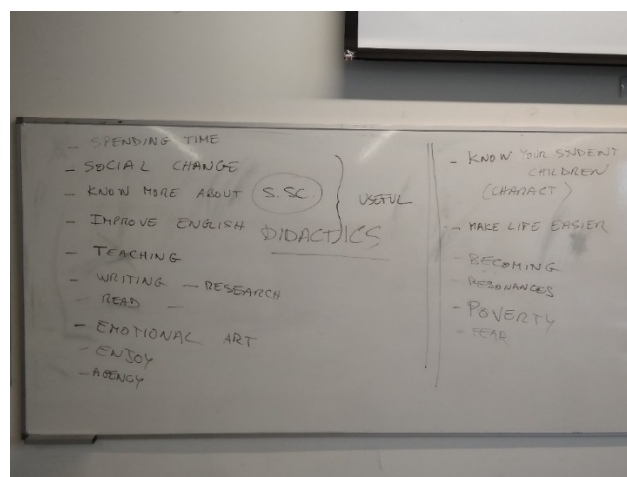 - SPENDING TIME
- SOCIAL CHANGE
- KNOW MORE ABOUT S.SC. } USEFUL
- IMPROVE ENGLISH
DIDACTICS
- TEACHING
- WRITING - RESEARCH
- READ -
- EMOTIONAL ART
- ENJOY
- AGENCY
- KNOW YOUR STUDENT
CHILDREN
(CHARACT)
- MAKE LIFE EASIER
- BECOMING
- RESONANCES
- POVERTY
- FEAR